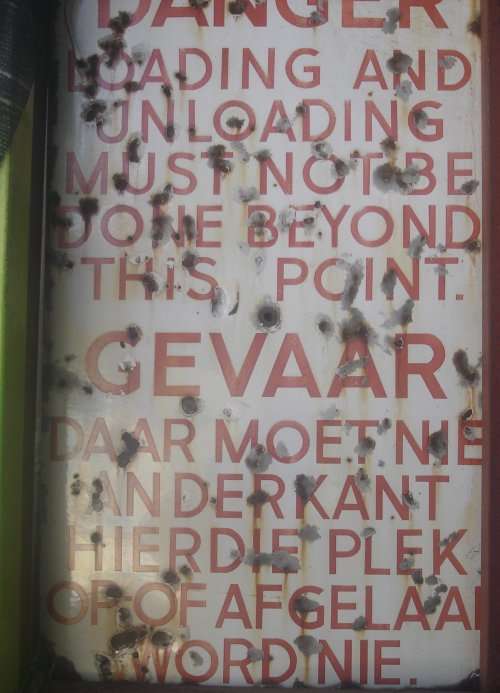 DANGER
LOADING AND
UNLOADING
MUST NOT BE
DONE BEYOND
THIS POINT.
GEVAAR
DAAR MOET NIE
ANDERKANT
HIERDIE PLEK
OP-OF AFGELAAI
WORD NIE.